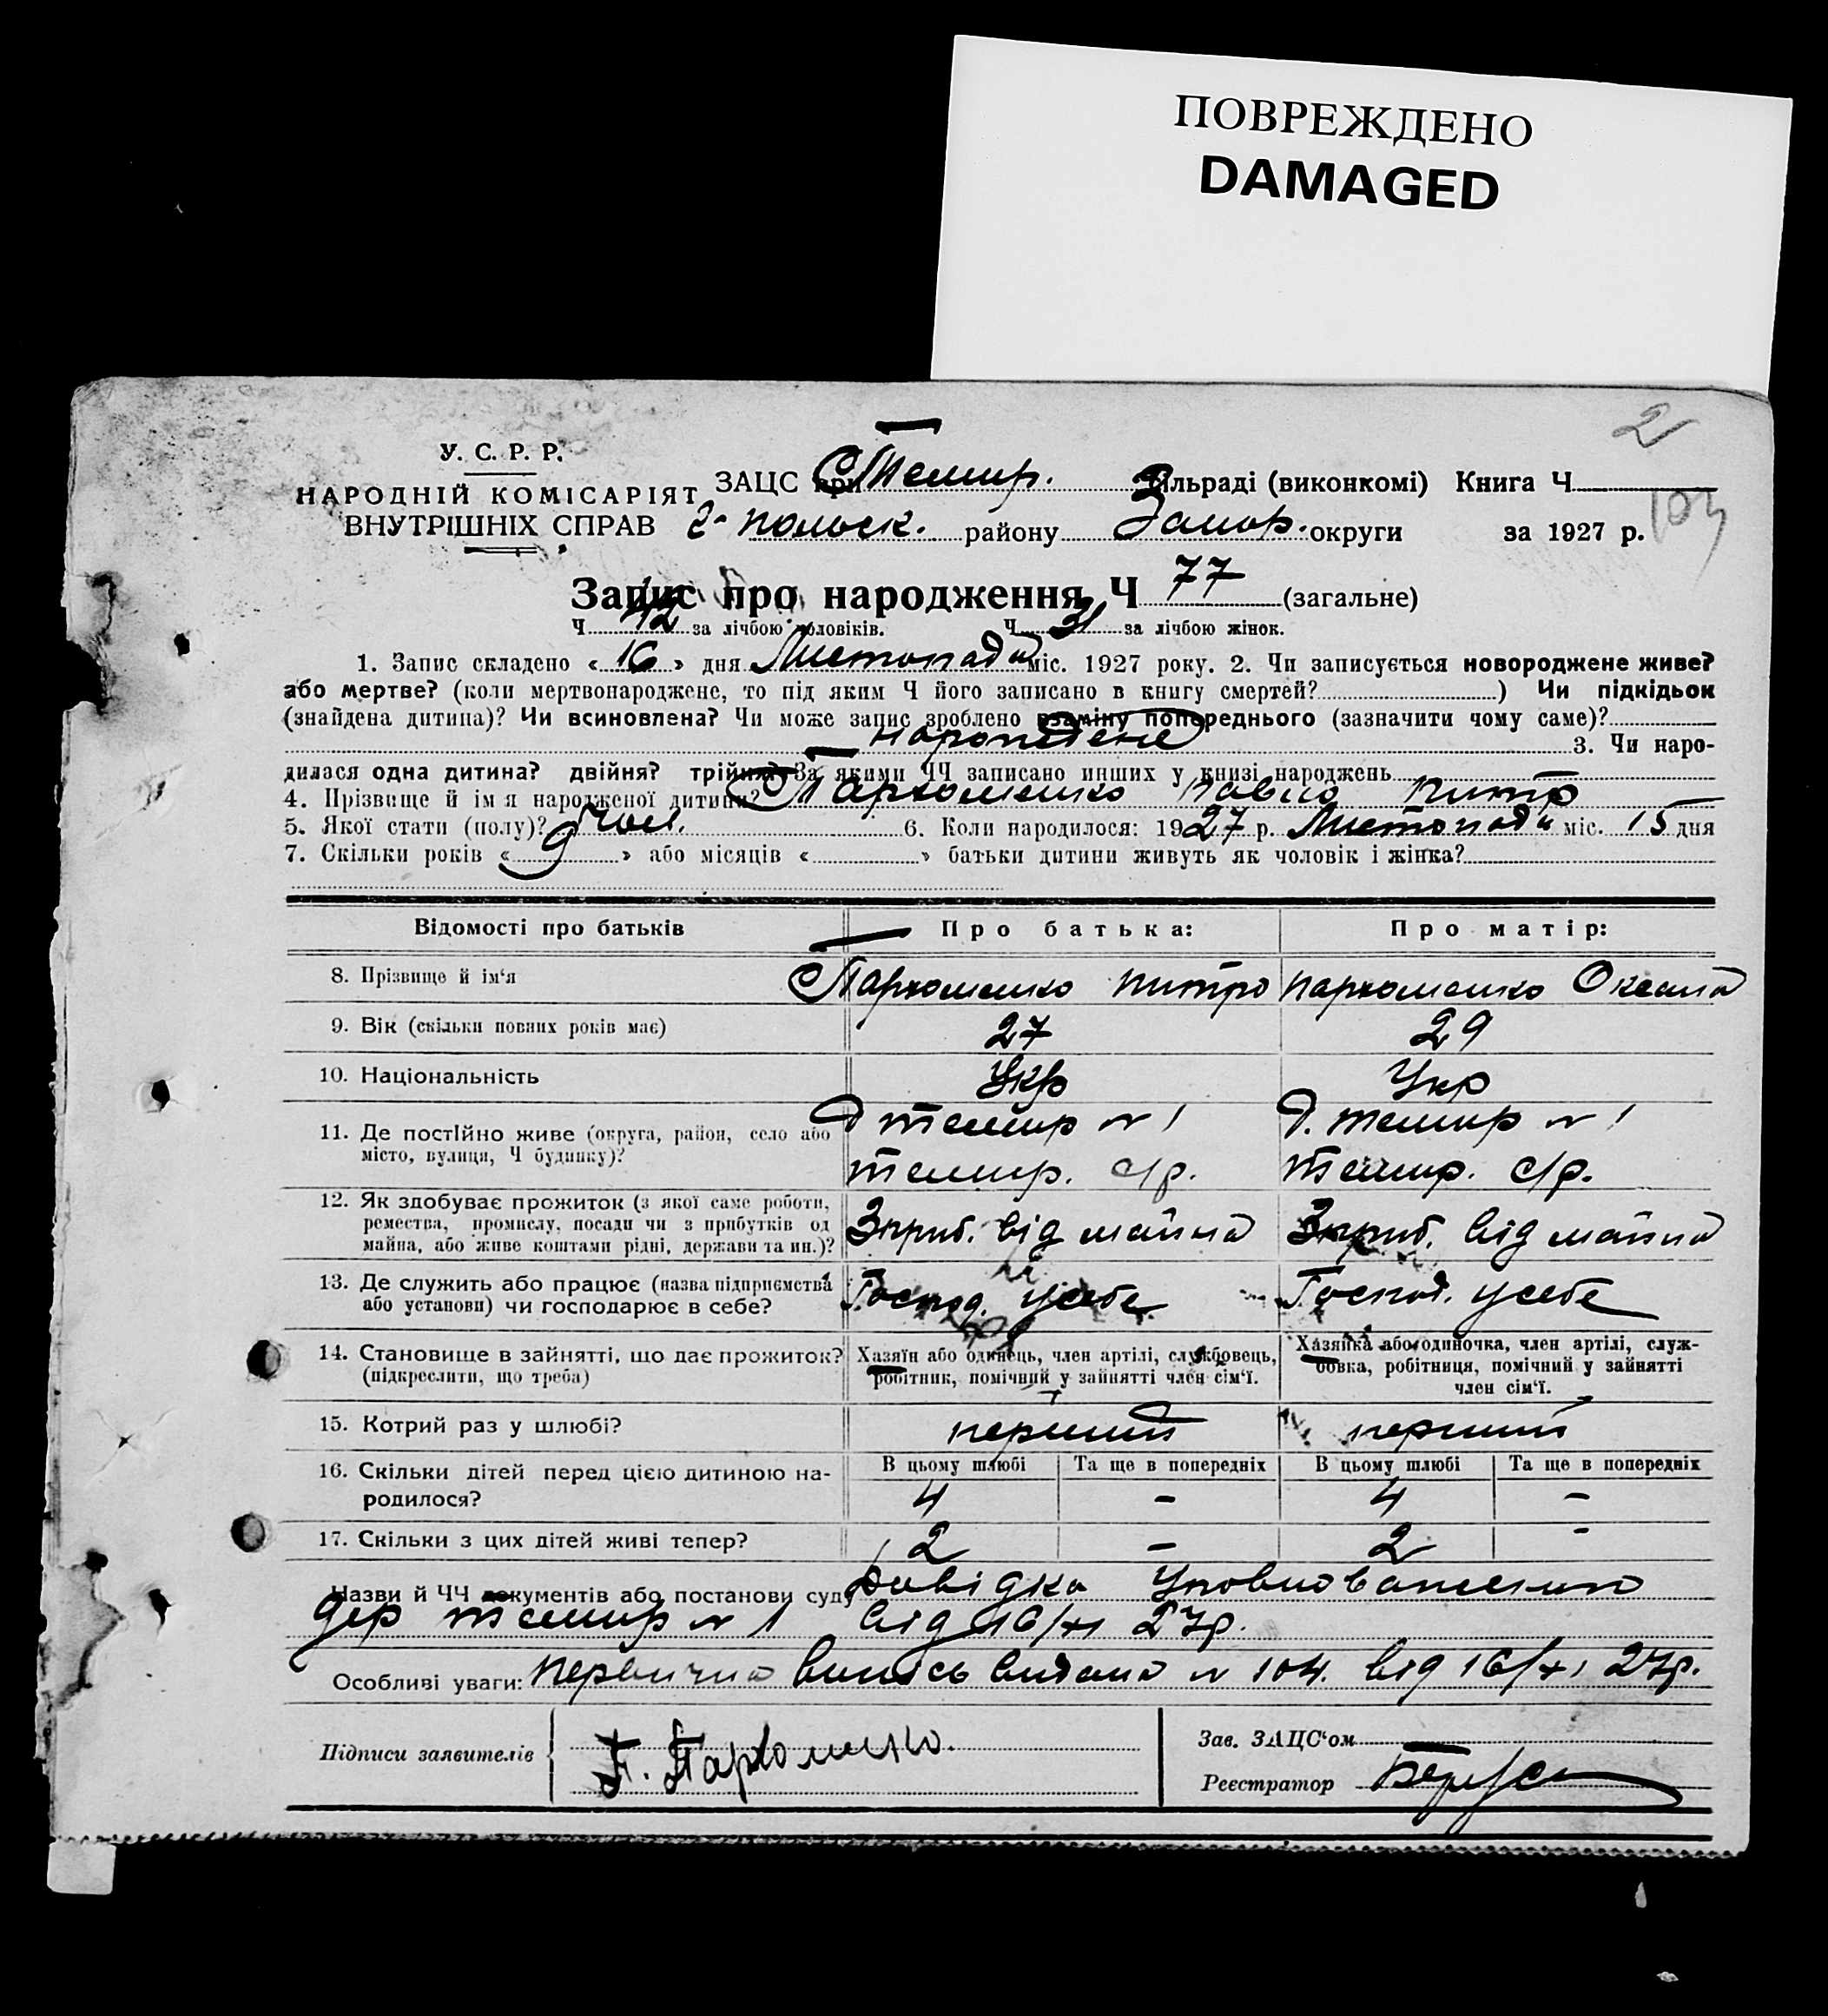 ПОВРЕЖДЕНО
DAMAGED
2
У. С. Р. Р.
НАРОДНІЙ КОМІСАРІЯТ
ВНУТРІШНІХ СПРАВ
ЗАЦС при Темир. сільраді (виконкомі) Книга Ч
Г-польск. району Запор. округи за 1927 р.
104
Запис про народження Ч 77 (загальне)
Ч 42 за лічбою чоловіків. Ч за лічбою жінок.
1. Запис складено « 16 » дня Листопада міс. 1927 року. 2. Чи записується новороджене живе?
або мертве? (коли мертвонароджене, то під яким Ч його записано в книгу смертей? ) Чи підкідьок
(знайдена дитина)? Чи всиновлена? Чи може запис зроблено взаміну попереднього (зазначити чому саме)?
3. Чи наро-
дилася одна дитина? двійня? трійня? За якими ЧЧ записано инших у книзі народжень
4. Прізвище й ім'я народженої дитини? Пархоменко Павло Питр
5. Якої стати (полу)? Чол. 6. Коли народилося: 1927 р. Листопада міс. 15 дня
7. Скільки років « 9 » або місяців « » батьки дитини живуть як чоловік і жінка?
Відомості про батьків Про батька: Про матір:
8. Прізвище й ім'я Пархоменко Питро Пархоменко Оксана
9. Вік (скільки повних років має) 27 29
10. Національність Укр Укр
11. Де постійно живе (округа, район, село або
місто, вулиця, Ч будинку)?
д темир № 1 д. темир № 1
темир. с/р. темир. с/р.
12. Як здобуває прожиток (з якої саме роботи,
ремества, промислу, посади чи з прибутків од
майна, або живе коштами рідні, держави та ин.)?
Зприб. від майна Зприб. від майна
13. Де служить або працює (назва підприємства
або установи) чи господарює в себе?
Господ. усебе Господ. усебе
14. Становище в зайнятті, що дає прожиток?
(підкреслити, що треба)
Хазяїн або одинець, член артілі, службовець,
робітник, помічний у зайнятті член сім'ї.
Хазяйка або одиночка, член артілі, служ-
бовка, робітниця, помічний у зайнятті
член сім'ї.
15. Котрий раз у шлюбі? перший перший
16. Скільки дітей перед цією дитиною на-
родилося?
В цьому шлюбі Та ще в попередніх В цьому шлюбі Та ще в попередніх
4 - 4 -
17. Скільки з цих дітей живі тепер? 2 - 2 -
Назви й ЧЧ документів або постанови суду Довідка Уповноваженого
дер темир № 1 від 16/XI 27р.
Особливі уваги: первична випись видана № 104. від 16/XI 27р.
Підписи заявителів П. Пархоменко.
Зав. ЗАЦС'ом
Реєстратор